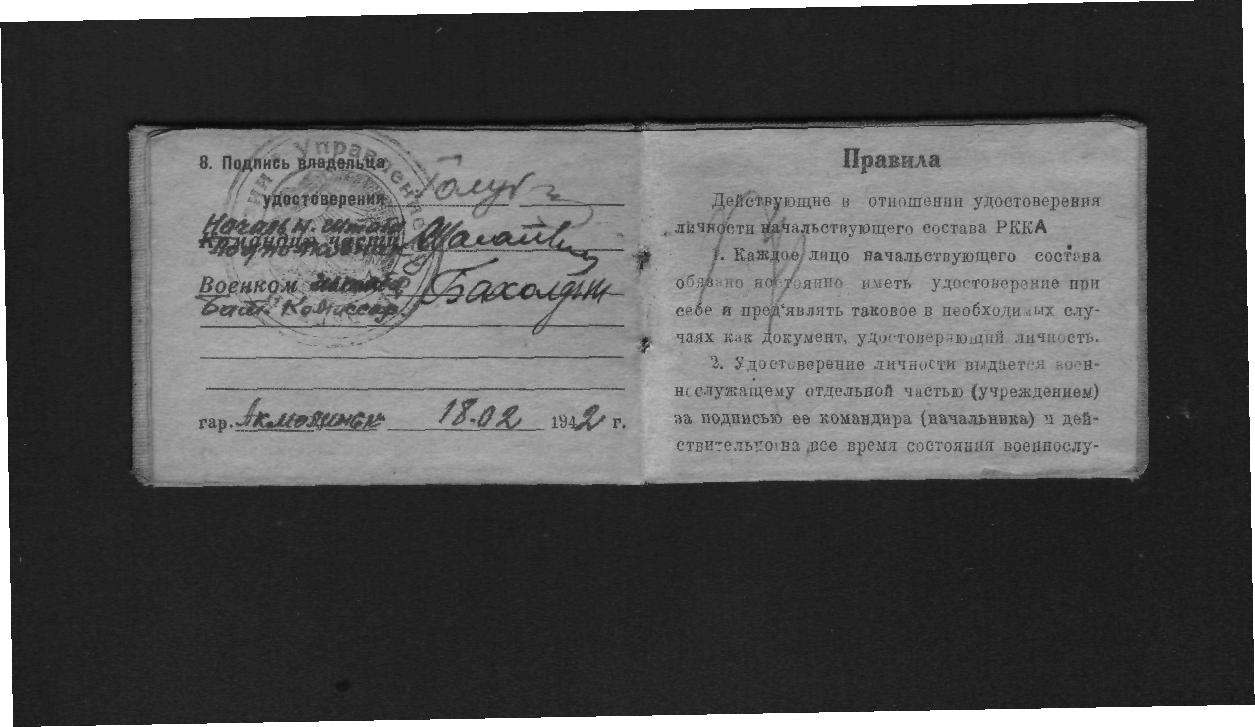 8. Подпись владельца
удостоверения
Управление
Началь н. штаба
Командир части
Военком
Бат. Комиссар
Бахолдин
гар. Акмолинск 18.02 1942 г.
Правила
Действующие в отношении удостоверения
личности начальствующего состава РККА
1. Каждое лицо начальствующего состава
обязано постоянно иметь удостоверение при
себе и пред'являть таковое в необходимых слу-
чаях как документ, удостоверяющий личность.
2. Удостоверение личности выдается воен-
нослужащему отдельной частью (учреждением)
за подписью ее командира (начальника) и дей-
ствительно на все время состояния военнослу-